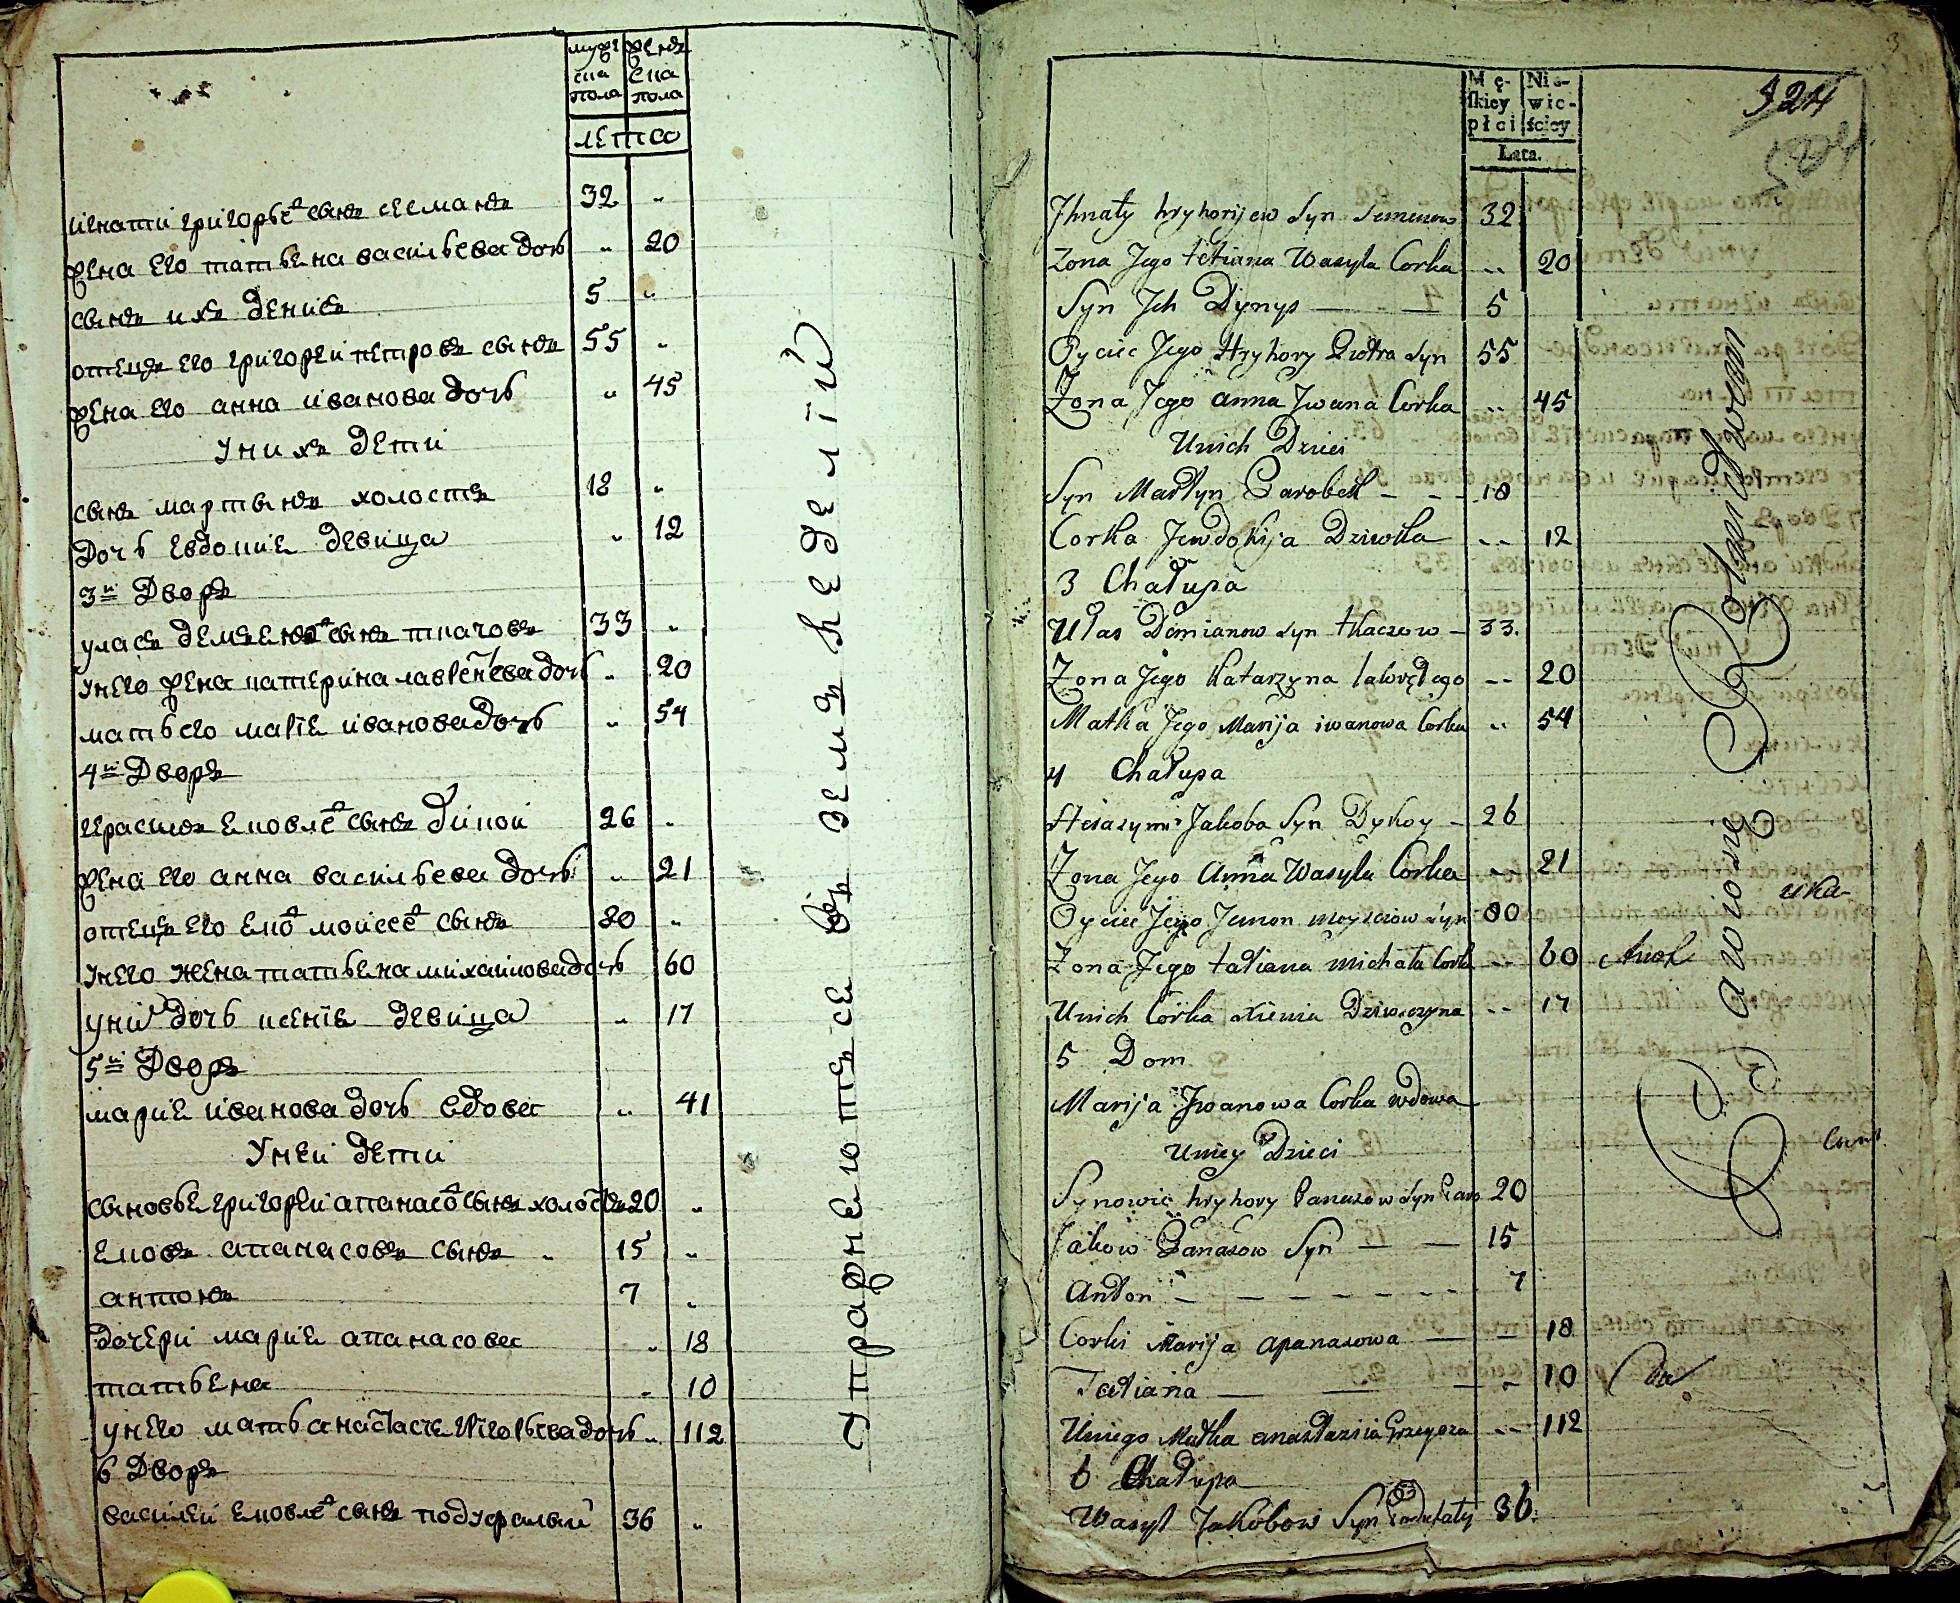 мужеска пола
женска пола
летсо
игнатий григорьевъ сынъ семанъ 32 „
жена его татьена васильева дочь „ 20
сынъ ихъ денисъ 5 „
отецъ его григореи петровъ сынъ 55 „
жена его анна иванова дочь „ 45
У нихъ дети
сынъ мартынъ холостъ 18 „
дочь евдокие девица „ 12
3й Дворъ
уласъ демьеновъ сынъ ткачовъ 33 „
У него жена катерина лаврентева дочь „ 20
мать его марiе иванова дочь „ 54
4й Дворъ
герасимъековлевъ сынъ дикои 26 „
жена его анна васильева дочь „ 21
отецъ его еков моисеевъ сынъ 80 „
У него жена татьена михаилова дочь 60
у них дочь ксенiе девица „ 17
5й Дворъ
марие иванова дочь вдова „ 41
У неи дети
сыновье григореи апанасовъ сынъ холостъ 20 „
ековъ апанасовъ сынъ „ 15 „
антонъ 7 „
дочери марие апанасова „ 18
татьена „ 10
у него мать анастасие григорьева дочь „ 112
6 Дворъ
василеи ековлевъ сынъ подуфалыи 36 „
Упражнеютъсе въ земъ неделiи
Męskiey płci
Niewieściey
Lata.
324
Jhnaty hryhorijew Syn Semenow 32
Zona Jego tetiana Wasyla Corka „ 20
Syn Jch Dynys — — 5
Oyciec Jego Hryhory Piotra Syn 55
Zona Jego anna Jwana Corka „ 45
Unich Dzieci
Syn Martyn Parobek - - - 18
Corka Jewdokija Dziwka - - 12
3 Chałupa
Ułas Demianow Syn tkaczow - 33.
Zona Jego Katarzyna ławrętego -- 20
Matka Jego Marija iwanowa Corka „ 54
4 Chałupa
Herasym Jakoba Syn Dykoy - 26
Zona Jego Anna Wasyla Corka -- 21
Oyciec Jego Jemon moyseiow Syn 80
Zona Jego tatiana michała Corka -- 60
Unich Corka xienia Dziwczyna -- 17
5 Dom
Marija Jwanowa Corka wdowa
Uniey Dzieci
Synowie hryhory Panasow Syn Paro 20
Jakow Panasow Syn — — 15
Anton - - - - - - 7
Corki Marija apanasowa — — 18
Tatiana — — - - 10
Uniego Matka anastazia Grzegorza -- 112
6 Chałupa
Wasyl Jakobow Syn Podufały 36.